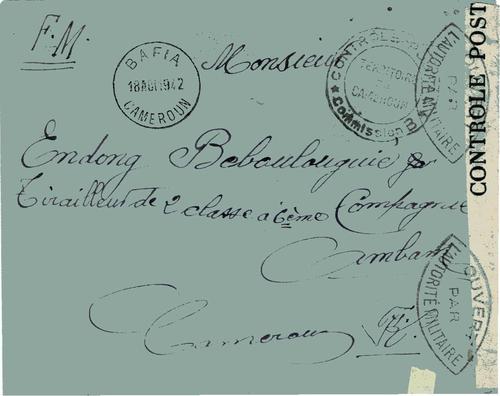 F.M.
BAFIA
18 AOU 1942
CAMEROUN
Monsieur
CONTROLE
TERRITOIRE
DU
CAMEROUN
Commission B
L'AUTORITÉ MILITAIRE
PAR
CONTROLE POST
Endong Beboulouguie
Tirailleur de 2 classe à 6ème Compagnie
Ambam
Cameroun
OUVERT
PAR
L'AUTORITÉ MILITAIRE